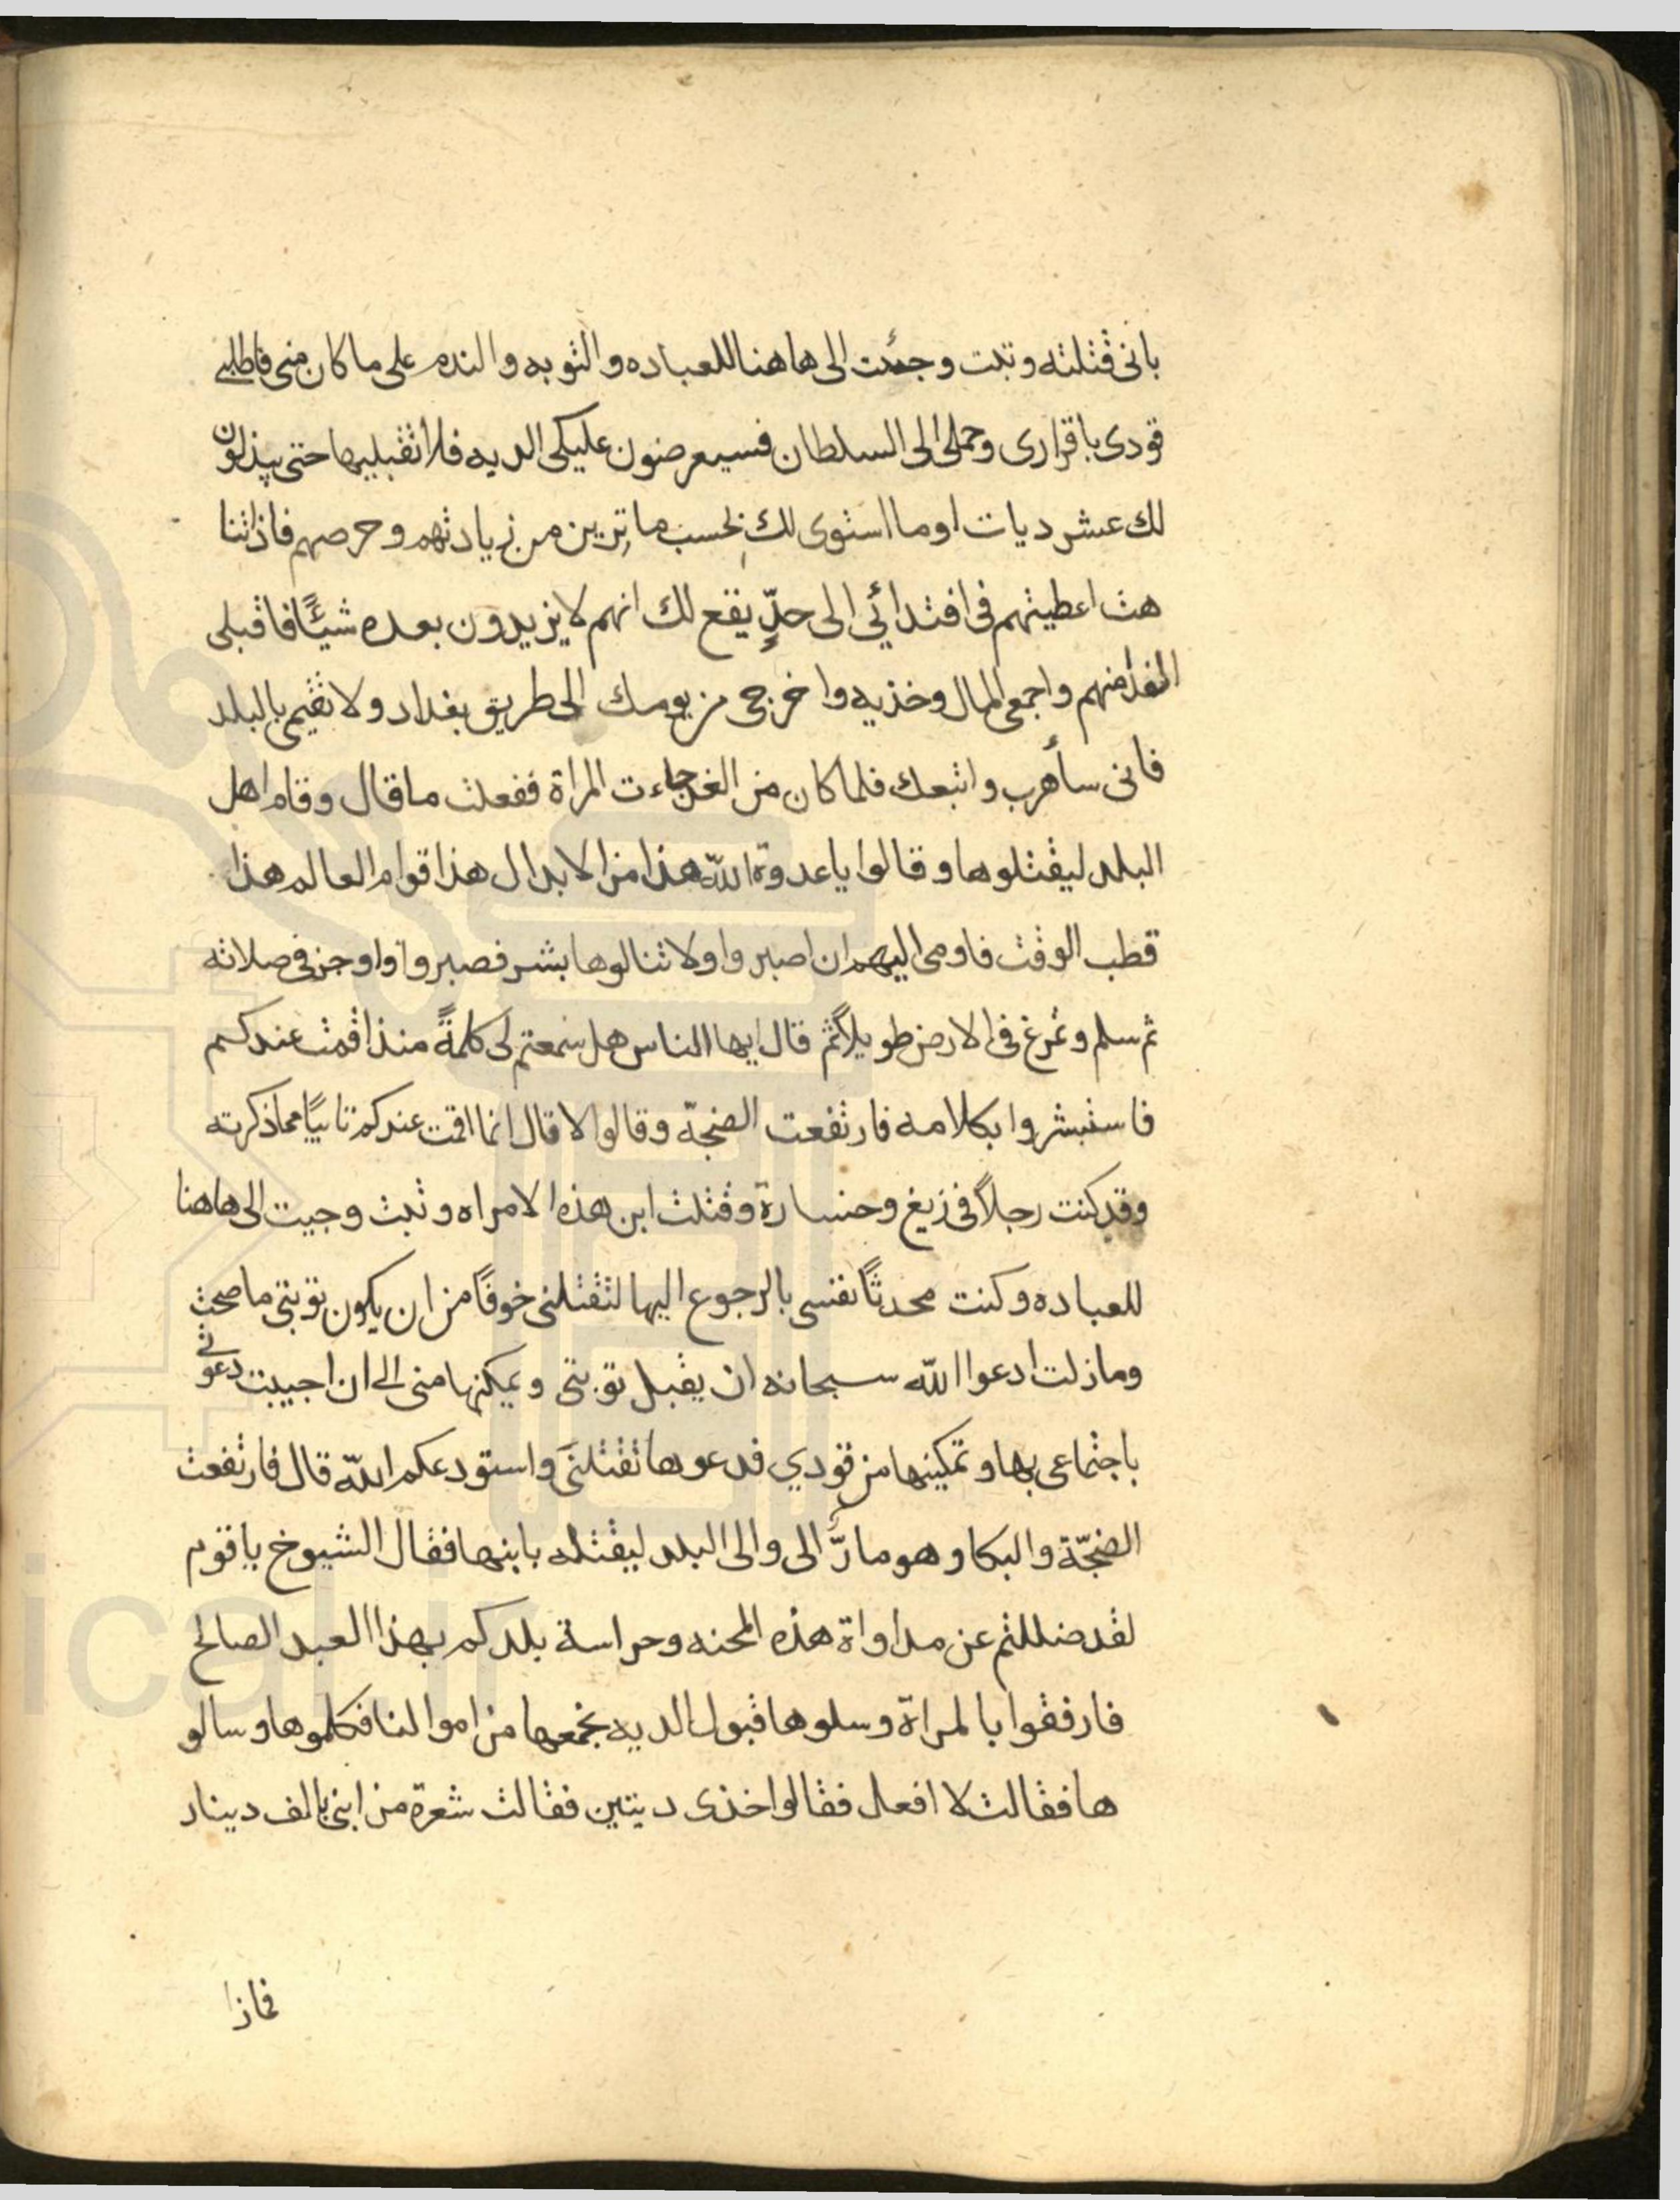 بانى قتلته وتبت وجئت الى هاهنا للعباده والتوبه والندم على ماكان منى فاطلبى
قودى باقرارى وحملى الى السلطان فسيعرضون عليكى الديه فلا تقبليها حتى يبذلون
لك عشر ديات او ما استوى لك بحسب ما ترين من زيادتهم وحرصهم فاذا تنا
هت اعطيتهم فى افتدائي الى حدٍّ يقع لك انهم لا يزيدون بعده شيئًا فاقبلى
الفدا منهم واجمعى المال وخذيه واخرجى من يومك الى طريق بغداد ولا تقيمى بالبلد
فانى سأهرب واتبعك فلما كان من الغد جاءت المراة ففعلت ما قال وقام اهل
البلد ليقتلوها وقالوا ياعدوة الله هذا من الابدال هذا قوام العالم هذا
قطب الوقت فاومى اليهم ان اصبروا ولا تنالوها بشر فصبروا واوجز فى صلاته
ثم سلم وتمرغ فى الارض طويلاً ثم قال ايها الناس هل سمعتم لى كلمةً منذ اقمت عندكم
فاستبشروا بكلامه فارتفعت الضجّة وقالوا لا قال انما اقمت عندكم تائبًا مما ذكرته
وقد كنت رجلاً فى زيغ وخسارة وقتلت ابن هذه الامراه وتبت وجيت الى هاهنا
للعباده وكنت محدثاً نفسى بالرجوع اليها لتقتلنى خوفًا من ان يكون توبتى ما صحت
ومازلت ادعوا الله سبحانه ان يقبل توبتى ويمكنها منى الى ان اجيبت دعوتى
باجتماعى بها وتمكينها من قودي فدعوها تقتلنى واستودعكم الله قال فارتفعت
الضجّة والبكا وهو مارٌّ الى والى البلد ليقتله بابنها فقال الشيوخ ياقوم
لقد ضللتم عن مداواة هذه المحنه وحراسة بلدكم بهذا العبد الصالح
فارفقوا بالمراة وسلوها قبول الديه نجمعها من اموالنا فكلموها وسالو
ها فقالت لا افعل فقالوا خذى ديتين فقالت شعرة من ابنى بالف دينار
فاذا